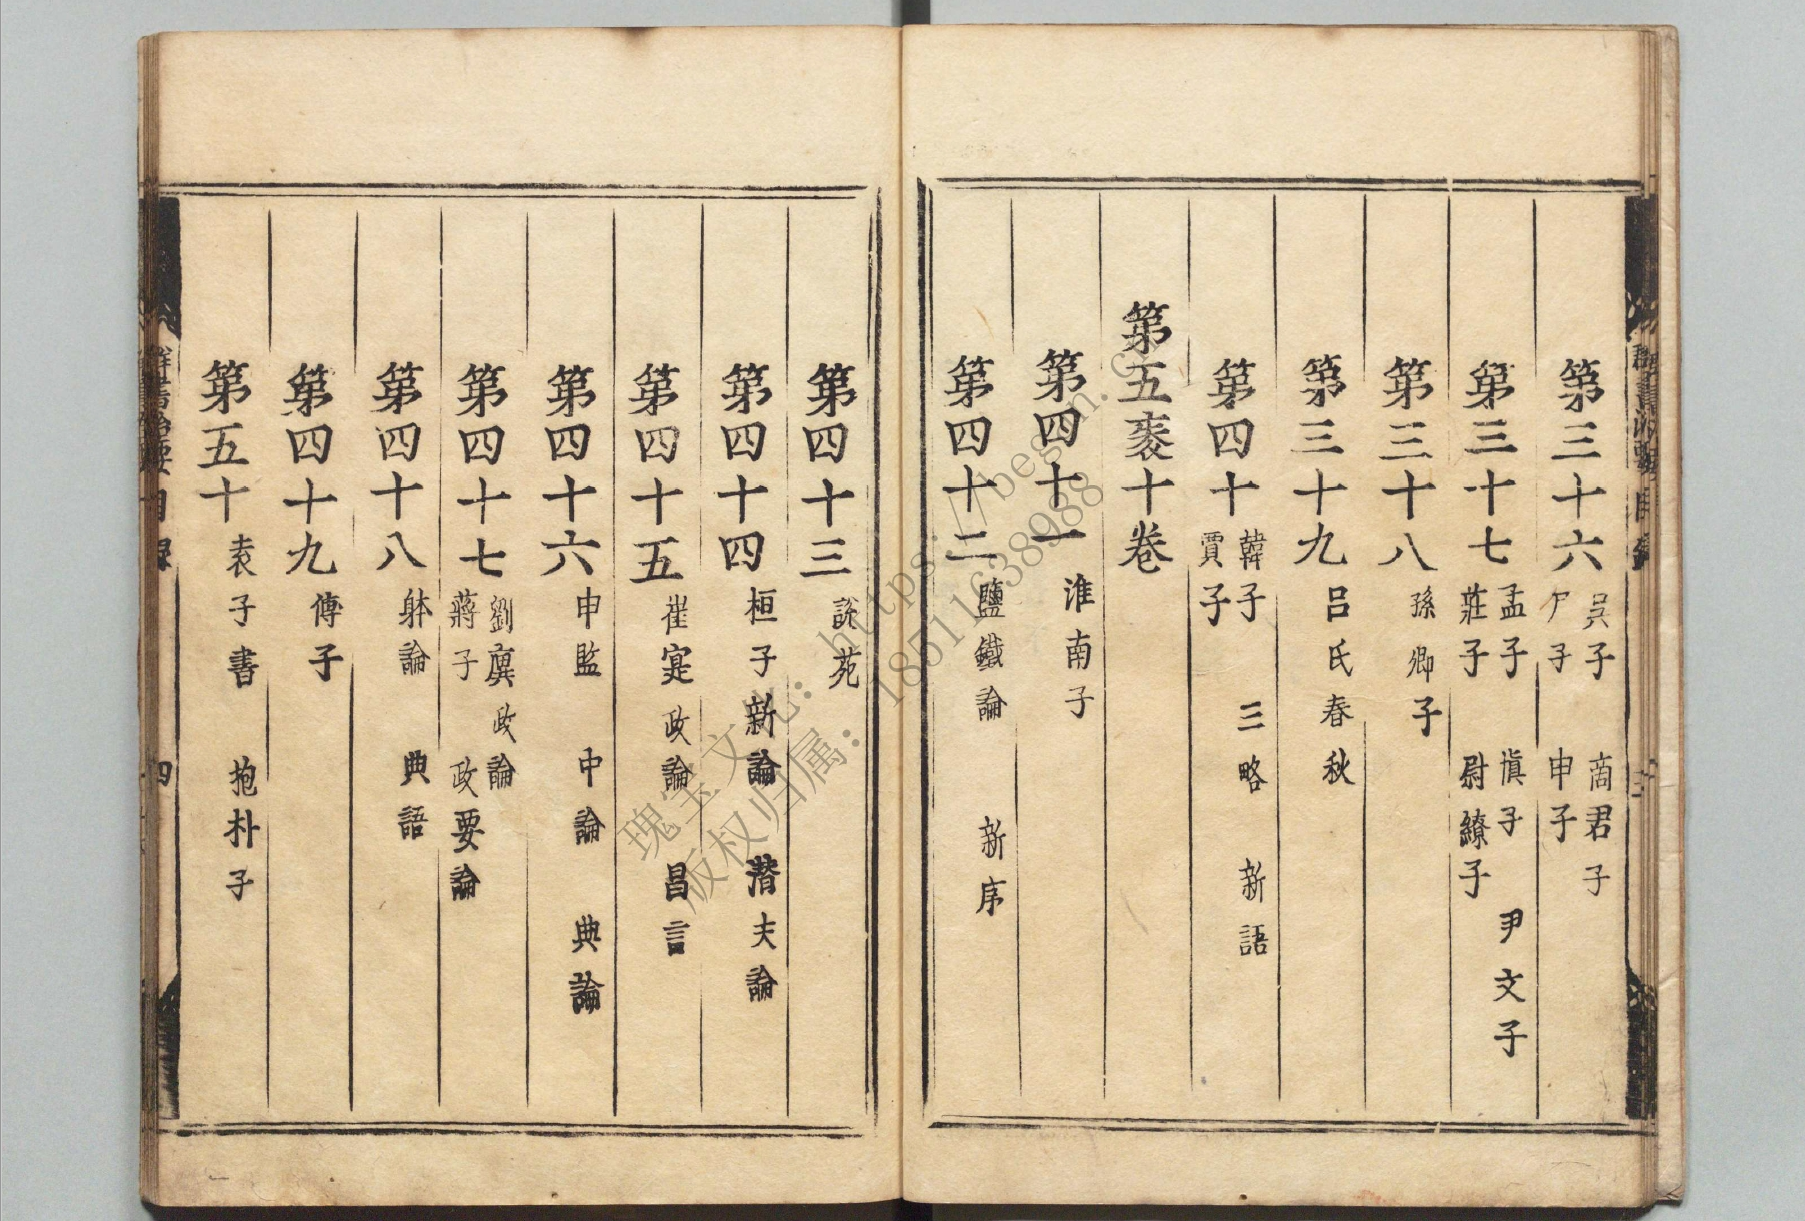 第三十六 吳子 商君子 尸子 申子
第三十七 孟子 愼子 尹文子 莊子 尉繚子
第三十八 孫卿子
第三十九 呂氏春秋
第四十 韓子 三略 新語 賈子
第五袠十卷
第四十一 淮南子
第四十二 鹽鐵論 新序
第四十三 說苑
第四十四 桓子新論 潛夫論
第四十五 崔寔政論 昌言
第四十六 申監 中論 典論
第四十七 劉廙政論 蔣子政要論
第四十八 躰論 典語
第四十九 傅子
第五十 袁子書 抱朴子
群書治要目錄 四
瑰宝文化:https://begn.c
版权归属:18511638988